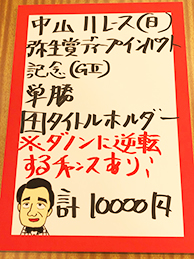 中山11レス(日)
弥生賞ディープインパクト
記念(GⅡ)
単勝
④タイトルホルダー
※ダノンに逆転
するチャンスあり、
計10000円